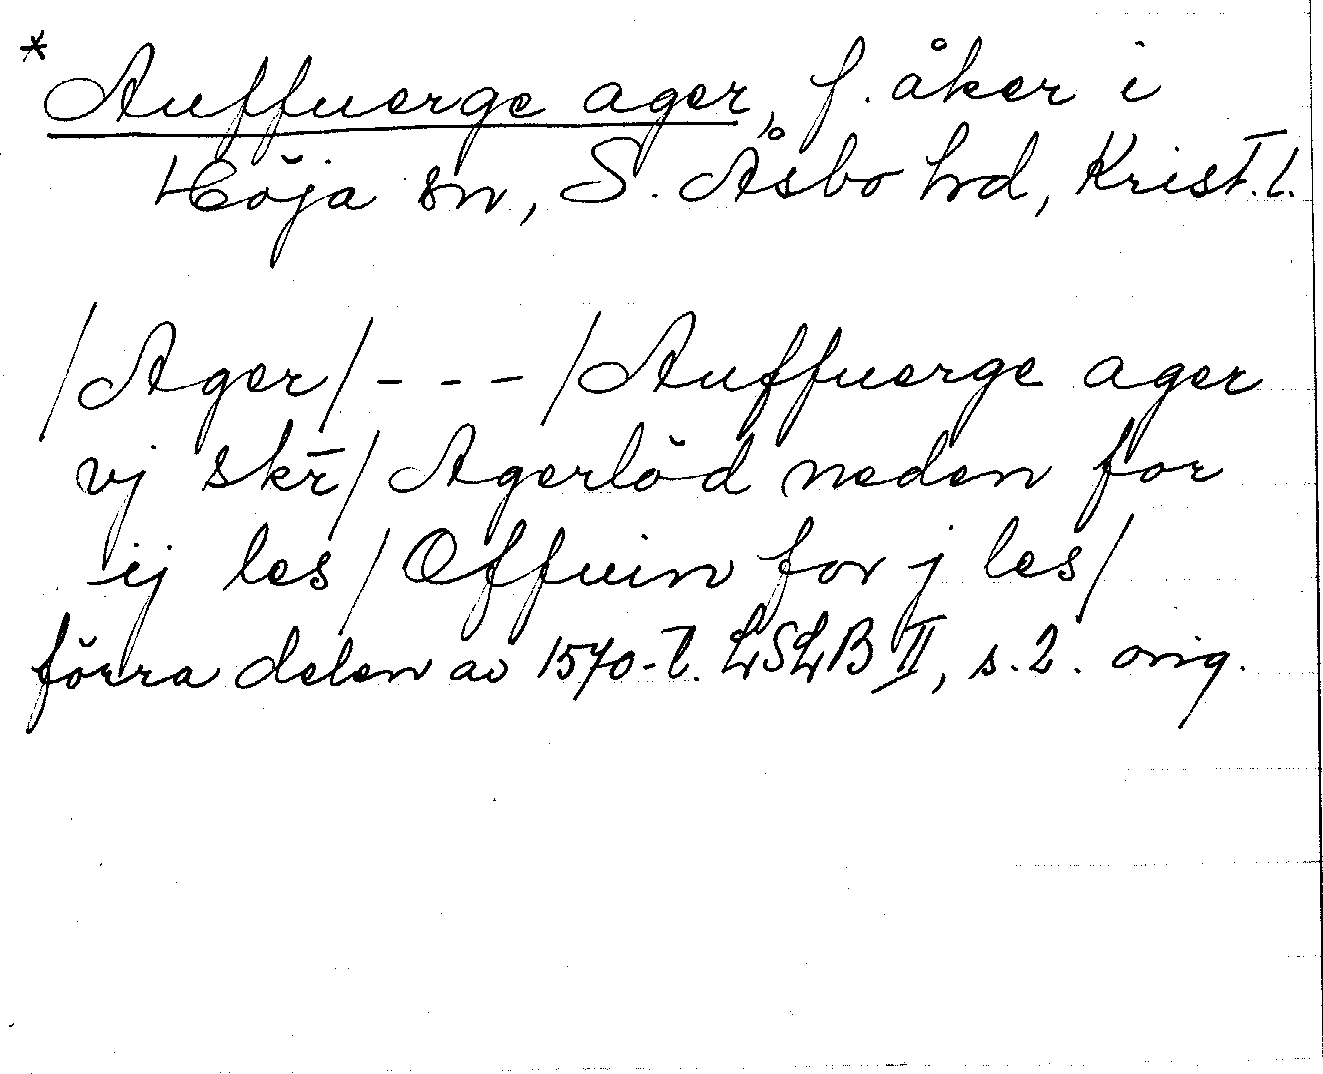 * Auffuerge ager, f. åker i
Höja sn, S. Åsbo hd, Krist. l.
/Ager/ - - - /Auffuerge ager
vj skr̄/ Agerlöd neden for
ij les / Offuin for j les/
förra delen av 1570-t. LSLB II, s. 2. orig.